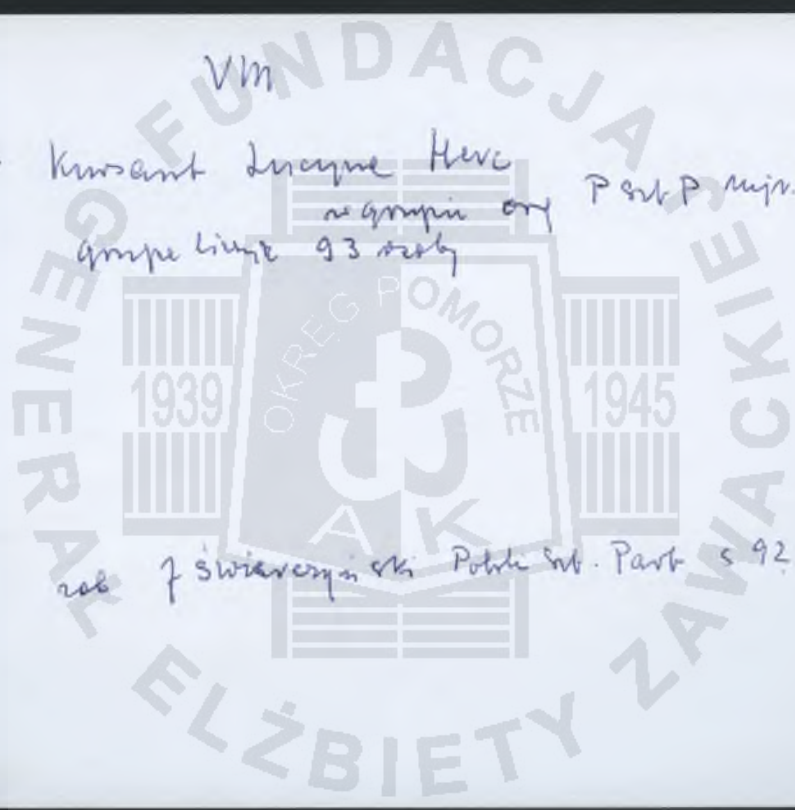 VM
Kursant Lucyna Herc
w grupie org P Szt P mjr.
grupa liczyła 93 osoby
zob J Świerczyński Polski Szt. Part s 92
FUNDACJA
GENERAŁ ELŻBIETY ZAWACKIEJ
OKRĘG POMORZE
1939
1945
AK